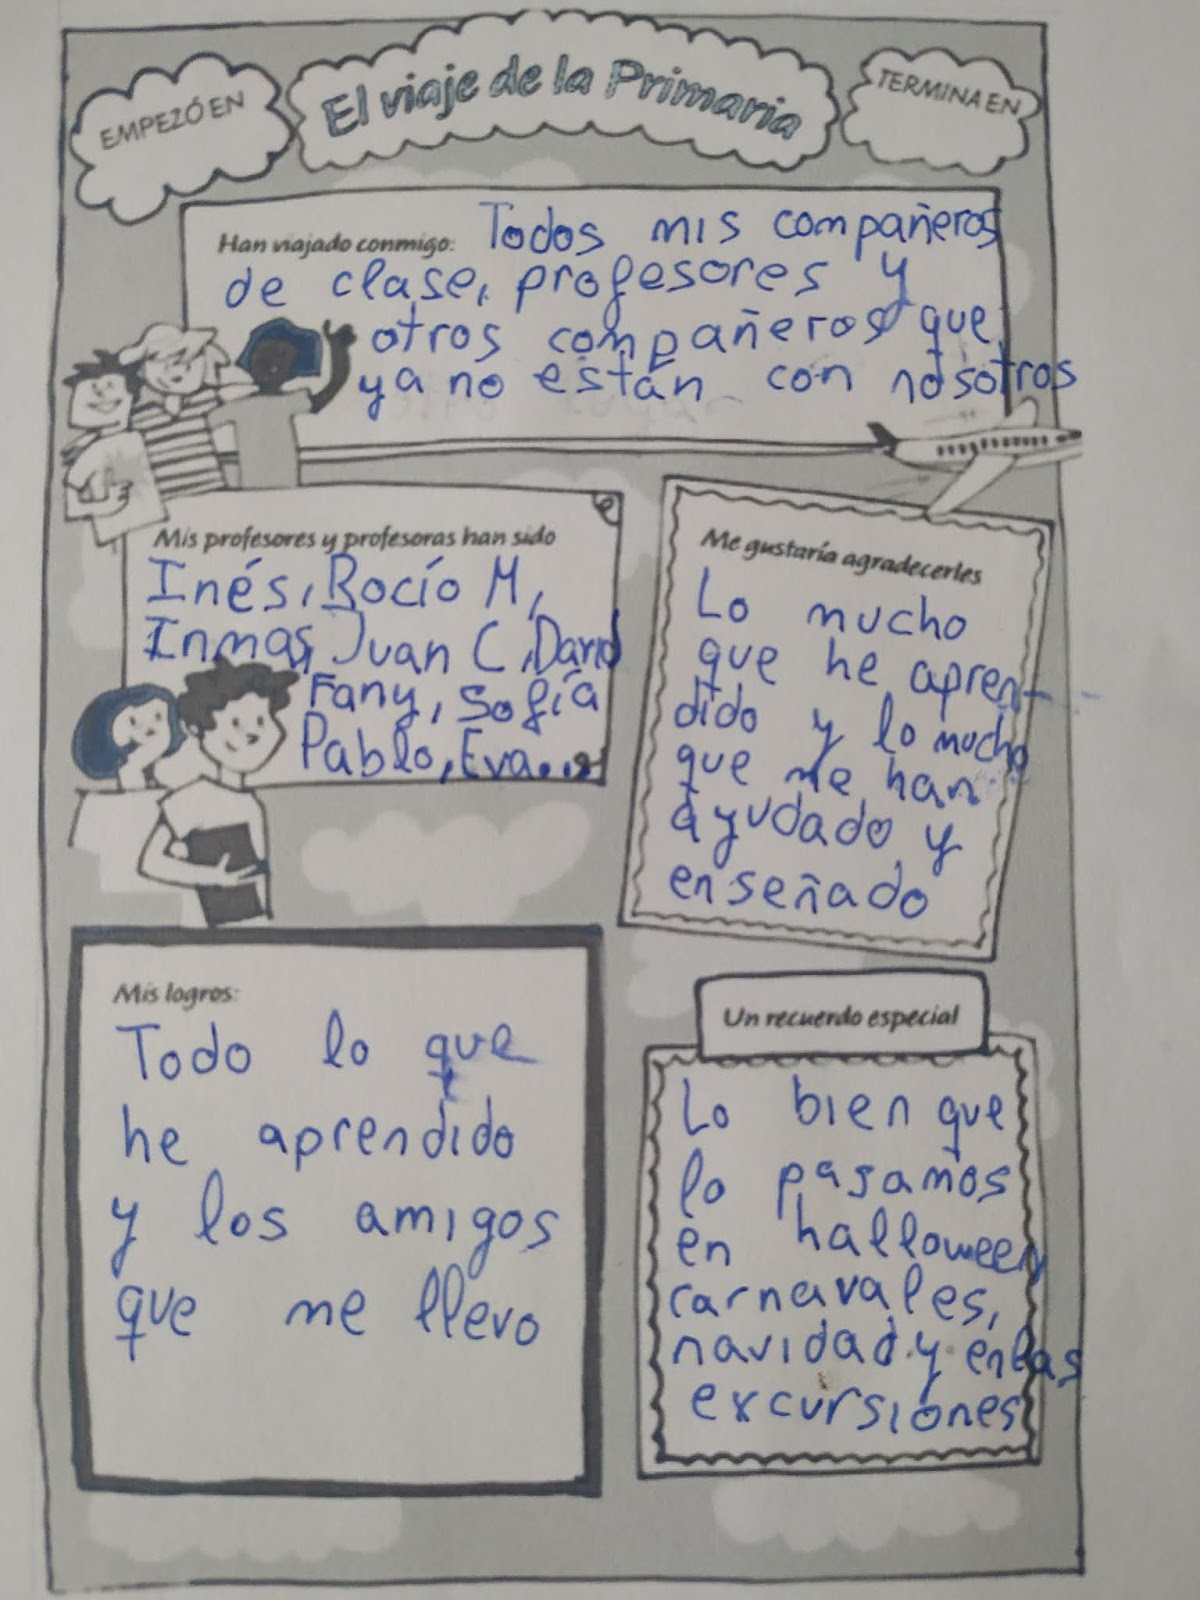 EMPEZÓ EN
El viaje de la Primaria
TERMINA EN
Han viajado conmigo: Todos mis compañeros
de clase, profesores y
otros compañeros que
ya no están con nosotros
Mis profesores y profesoras han sido
Inés, Rocío M,
Inma, Juan C, David
Fany, Sofía
Pablo, Eva...
Me gustaría agradecerles
Lo mucho
que he apren-
dido y lo mucho
que me han
ayudado y
enseñado
Mis logros:
Todo lo que
he aprendido
y los amigos
que me llevo
Un recuerdo especial
Lo bien que
lo pasamos
en halloween
carnavales,
navidad y en las
excursiones